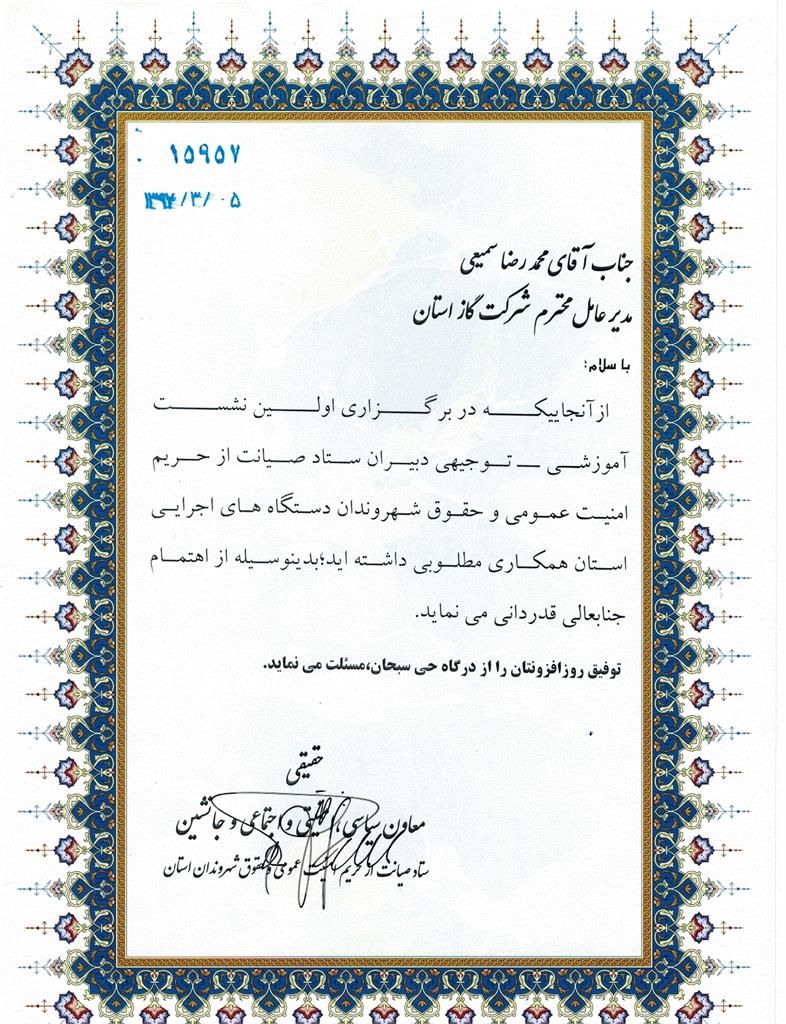 ۱۵۹۵۷
۱۳۹۷/۳/۰۵
جناب آقای محمد رضا سمیعی
مدیر عامل محترم شرکت گاز استان
با سلام؛
ازآنجاییکه در برگزاری اولین نشست
آموزشی – توجیهی دبیران ستاد صیانت از حریم
امنیت عمومی و حقوق شهروندان دستگاه های اجرایی
استان همکاری مطلوبی داشته اید؛بدینوسیله از اهتمام
جنابعالی قدردانی می نماید.
توفیق روزافزونتان را از درگاه حی سبحان،مسئلت می نماید.
حقیقی
معاون سیاسی، امنیتی و اجتماعی و جانشین
ستاد صیانت از حریم امنیت عمومی و حقوق شهروندان استان